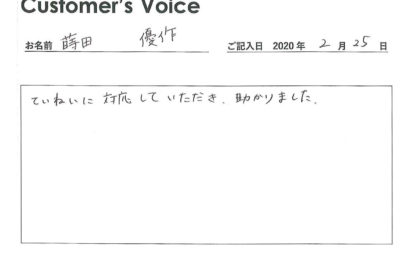 Customer's Voice
お名前 蒔田 優作 ご記入日 2020年 2月 25日
ていねいに 対応していただき、助かりました。